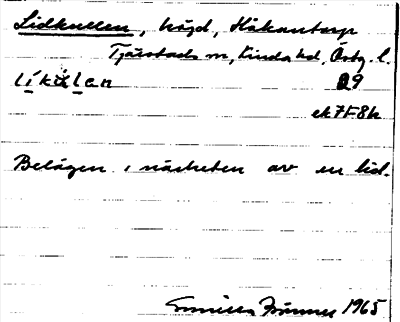 Lidkullen, höjd, Håkantorp
Tjärstads sn, Kinda hd, Östg. l.
li̱kúḻan 89
ek 7F8h
Belägen i närheten av en lid.
Gunilla Bränner 1965